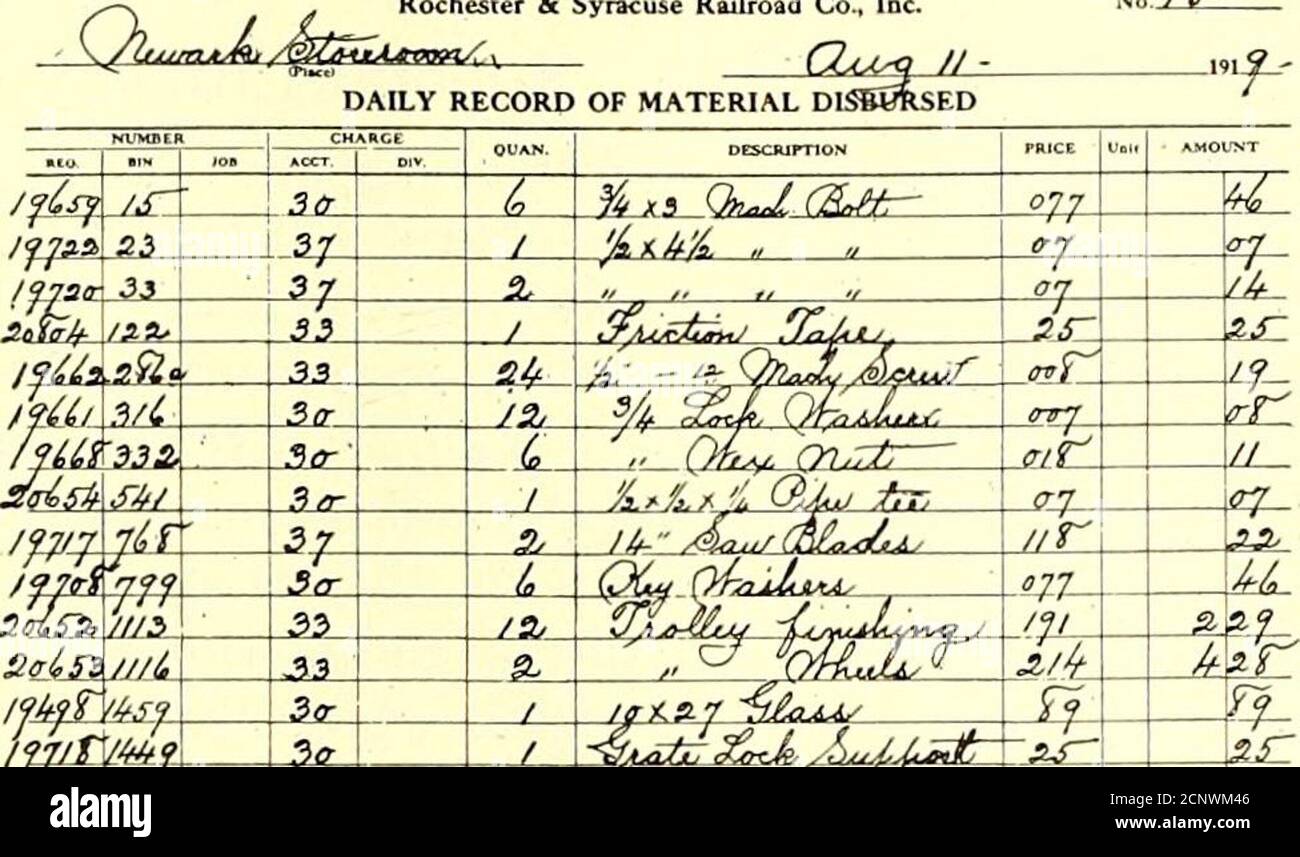 Rochester & Syracuse Railroad Co., Inc. No.
Newark Storeroom Aug 11 - 1919 -
(Place)
DAILY RECORD OF MATERIAL DISBURSED
NUMBER CHARGE QUAN. DESCRIPTION PRICE Unit AMOUNT
REQ. BIN JOB ACCT. DIV.
19659 15 30 6 3/4 x 3 Mach. Bolt 077 46
19722 23 37 1 1/2 x 4 1/2 " " 07 07
19720 33 37 2 " " " " 07 14
20804 122 33 1 Friction Tape 25 25
19662 286a 33 24 12 Mach Screw 008 19
19661 316 30 12 3/4 Lock Washers 007 08
19668 332 30 6 " Hex Nut 018 11
20654 541 30 1 1/2 x 1/2 x 1/4 Pipe tee 07 07
19717 768 37 2 14" Saw Blades 118 22
19708 799 30 6 Key Washers 077 46
20652 1113 33 12 Trolley finishing 191 2 29
20653 1116 33 2 " Wheels 214 4 28
19498 1459 30 1 10 x 27 Glass 89 89
19718 1449 30 1 Grate Lock Support 25 25
alamy
Image ID: 2CNWM46
www.alamy.com